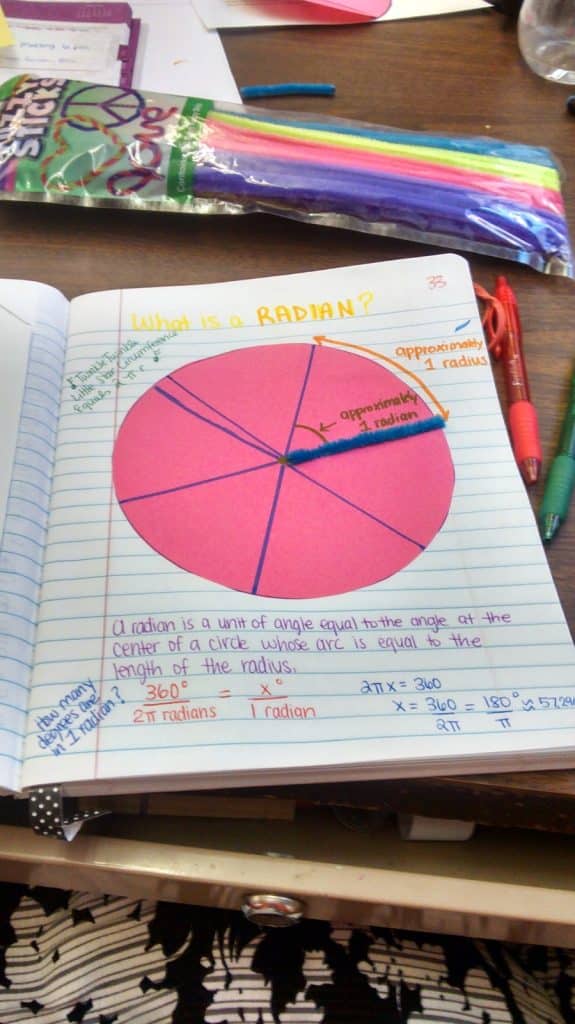 FUZZY
STICKS
Love
33
What is a RADIAN?
♪ Twinkle Twinkle
Little Star Circumference
Equals 2 π r ♪
approximately
1 radius
approximately
1 radian
a radian is a unit of angle equal to the angle at the
center of a circle whose arc is equal to the
length of the radius.
How many
degrees are
in 1 radian?
360° / 2π radians = x° / 1 radian
2πx = 360
x = 360 / 2π = 180° / π ≈ 57.29